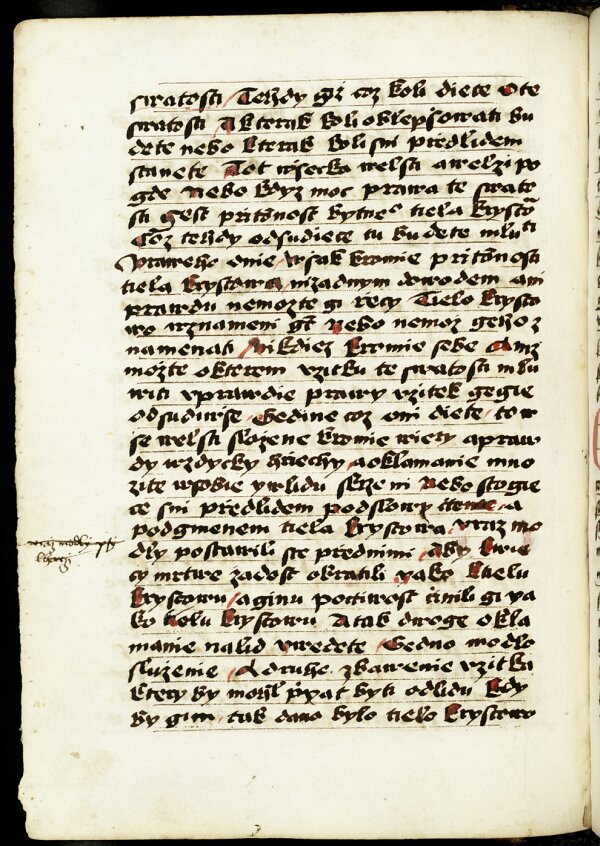 swatosti Tehdy giz coz koli diete o te
swatosti A kterak koli oklepsowati bu
dete nebo kterak koli sni predlidem
stanete Tot wsecko welsti a welzi po
gde Nebo kdyz moc prawa te swato
sti gest pritomnost bytne tiela krysto
Coz tehdy odsudiete tu budete mluwi
Praweho onie wsak kromie pritomnosti
tiela krystowa nizadnym dowodem ani
prawdu nemozte gi rzecy Tielo krysto
wo wznameni gt Nebo nemoz geho z
namenati Nikdiez kromie sebe Aniz
mozte okterem uzitku te swatosti mlu
witi uprawdie prawy uzitek gegie
odsudiwse Gedine coz oni diete to w
se welsti slozene kromie wiery a praw
dy wzdycky hriechy a oklamanie mno
zite wsobie w lidu skrze ni Nebo stogie
ce sni predlidem podslowy cteme a
podgmenem tiela krystowa wraz mo
dly postawili ste prednimi Aby kwie
cy mrtwe zadost obratili yako ktielu
krystowu a ginu poctiwost cinili gi ya
ko tielu krystowu A tak dwoge okla
manie nalid uwedete Gedno modlo
sluzenie A druhe zbawenie uzitka
ktery by mohl przyat byti odlidu kdy
by gim tak dano bylo tielo krystowo